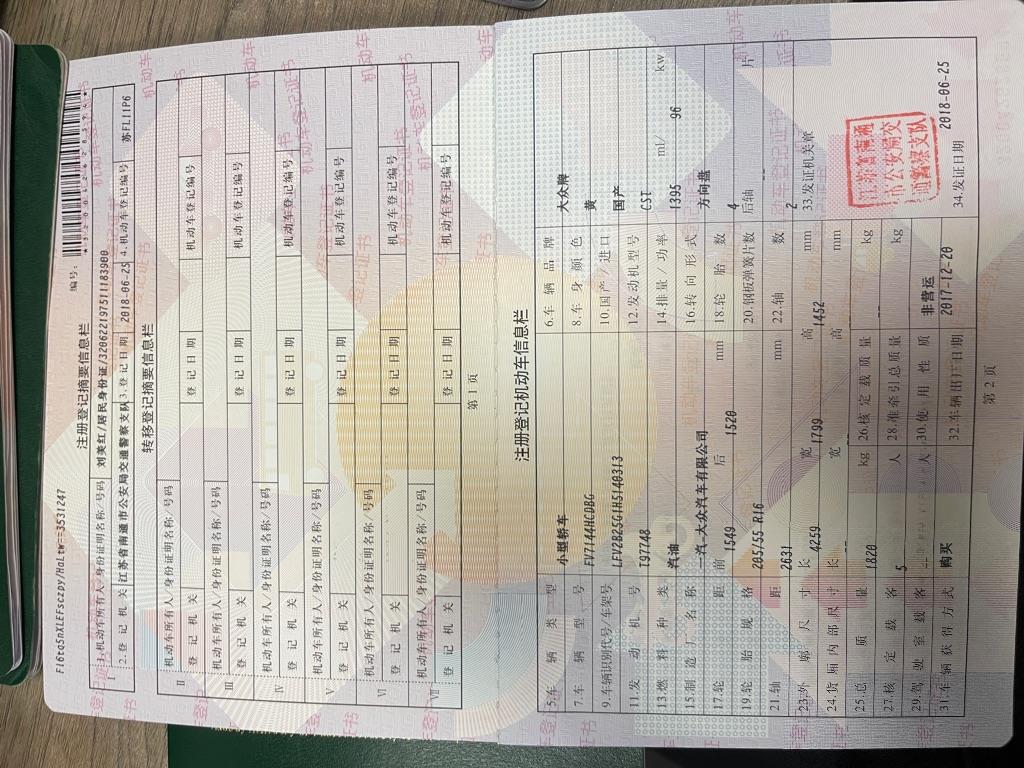 F16tq5nXLEFsczpy/HaLtw==3531247
编号:
注册登记摘要信息栏
Ⅰ 1.机动车所有人/身份证明名称/号码 刘美红/居民身份证/320622197511183900
2.登记机关 江苏省南通市公安局交通警察支队 3.登记日期 2018-06-25 4.机动车登记编号 苏FL11P6
转移登记摘要信息栏
Ⅱ 机动车所有人/身份证明名称/号码
登记机关 登记日期 机动车登记编号
Ⅲ 机动车所有人/身份证明名称/号码
登记机关 登记日期 机动车登记编号
Ⅳ 机动车所有人/身份证明名称/号码
登记机关 登记日期 机动车登记编号
Ⅴ 机动车所有人/身份证明名称/号码
登记机关 登记日期 机动车登记编号
Ⅵ 机动车所有人/身份证明名称/号码
登记机关 登记日期 机动车登记编号
Ⅶ 机动车所有人/身份证明名称/号码
登记机关 登记日期 机动车登记编号
第 1 页
注册登记机动车信息栏
5.车辆类型 小型轿车 6.车辆品牌 大众牌
7.车辆型号 FV7144HCDBG 8.车身颜色 黄
9.车辆识别代号/车架号 LFV2B25G1H5140313 10.国产/进口 国产
11.发动机号 T97748 12.发动机型号 CST
13.燃料种类 汽油 14.排量/功率 1395 ml/ 96 kw
15.制造厂名称 一汽-大众汽车有限公司 16.转向形式 方向盘
17.轮距 前 1549 后 1520 mm 18.轮胎数 4
19.轮胎规格 205/55 R16 20.钢板弹簧片数 后轴 -- 片
21.轴距 2631 mm 22.轴数 2
23.外廓尺寸 长 4259 宽 1799 高 1452 mm 33.发证机关章
24.货厢内部尺寸 长 -- 宽 -- 高 -- mm
25.总质量 1820 kg 26.核定载质量 -- kg
27.核定载客 5 人 28.准牵引总质量 -- kg
29.驾驶室载客 -- 人 30.使用性质 非营运
31.车辆获得方式 购买 32.车辆出厂日期 2017-12-20 34.发证日期 2018-06-25
江苏省南通
市公安局交
通警察支队
第 2 页